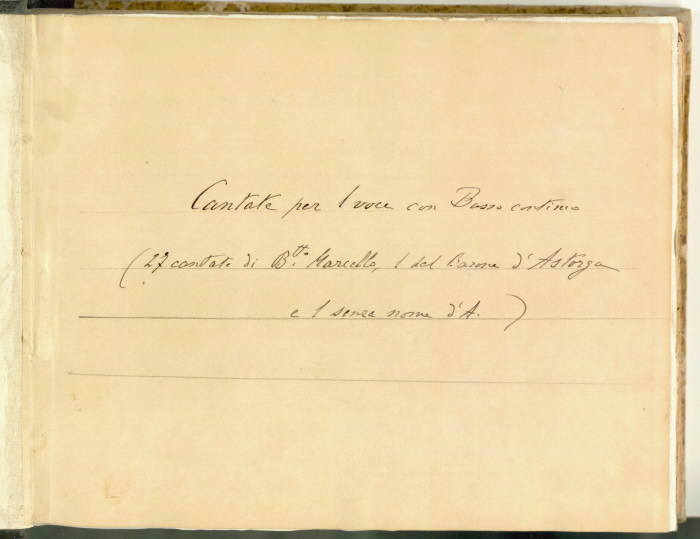 Cantate per 1 voce con Basso continuo
(27 cantate di B.tto Marcello, 1 del Barone d'Astorga
e 1 senza nome d'A.)